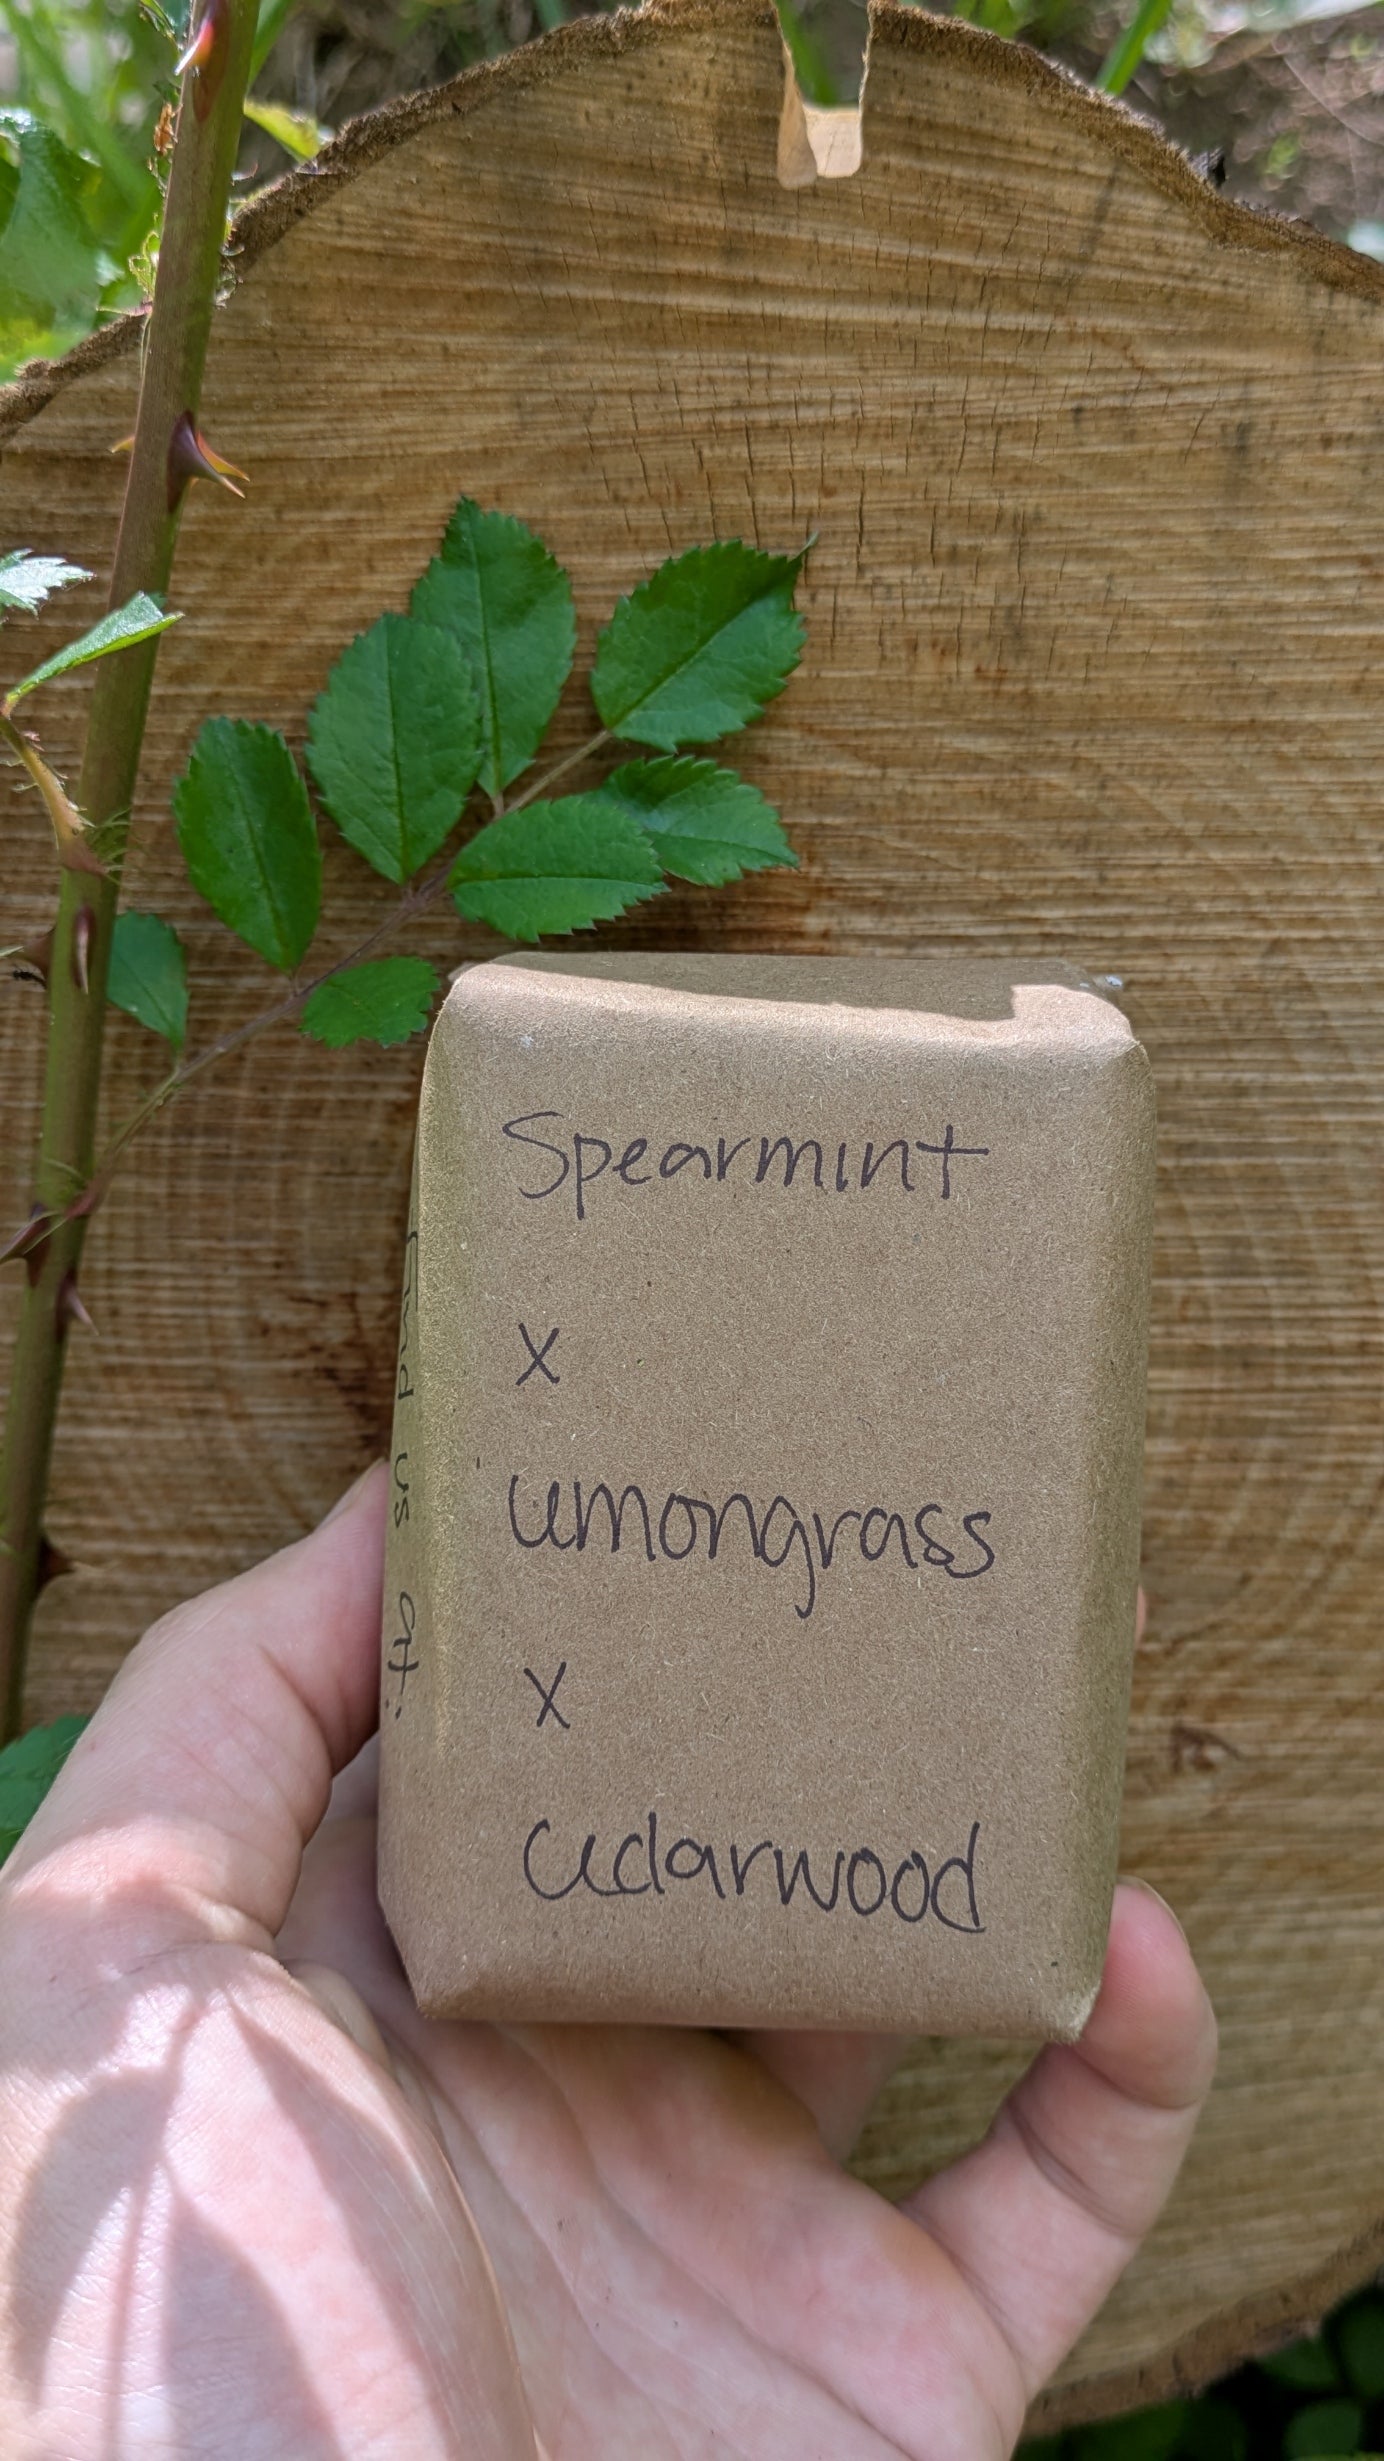 Spearmint
x
Lemongrass
x
Cedarwood
Find us at: